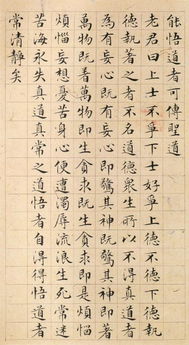 能悟道者可傳聖道
老君曰上士不爭下士好爭上德不德下德執
德執著之者不名道德衆生所以不得真道者
為有妄心既有妄心即驚其神既驚其神即著
萬物既著萬物即生貪求既生貪求即是煩惱
煩惱妄想憂苦身心便遭濁辱流浪生死常迷
苦海永失真道真常之道悟者自得得悟道者
常清靜矣